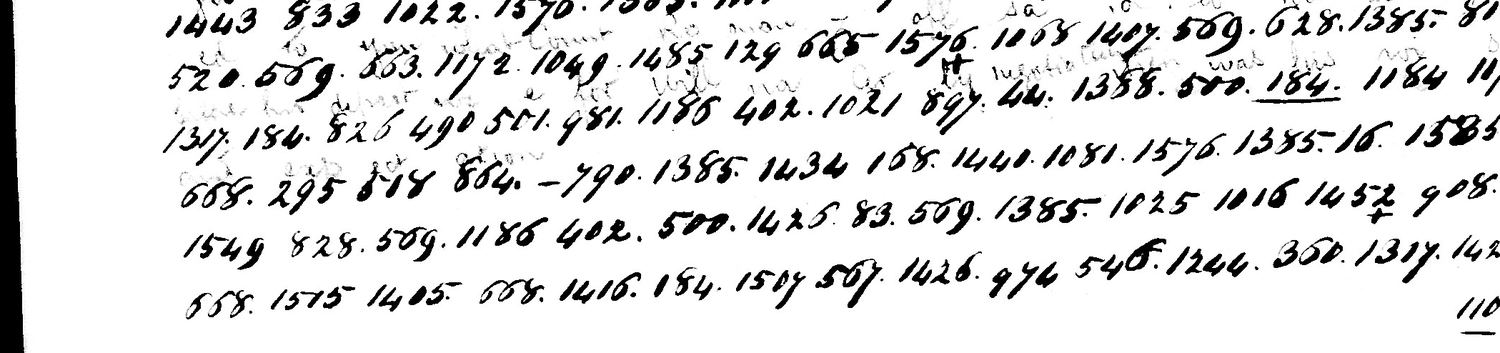 1443 833 1022. 1570.
520. 569. 663. 1172. 1049. 1485 129 665 1576. 1068 1407. 569. 628. 1385. 81
1317. 184. 826 490 501. 981. 1186 402. 1021 897. 44. 1388. 500. 184. 1184 11
668. 295 518 864. – 790. 1385. 1434 168. 1440. 1081. 1576. 1385. 16. 1585
1549 828. 569. 1186 402. 500. 1426. 83. 569. 1385. 1025 1016 1452 908.
668. 1515 1405. 668. 1416. 184. 1507 567. 1426. 974 546. 1244. 360. 1317. 142
110